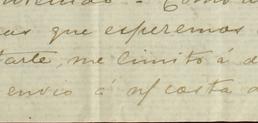 as que esperemos
arte, me limito á d
envio á n/ costa d